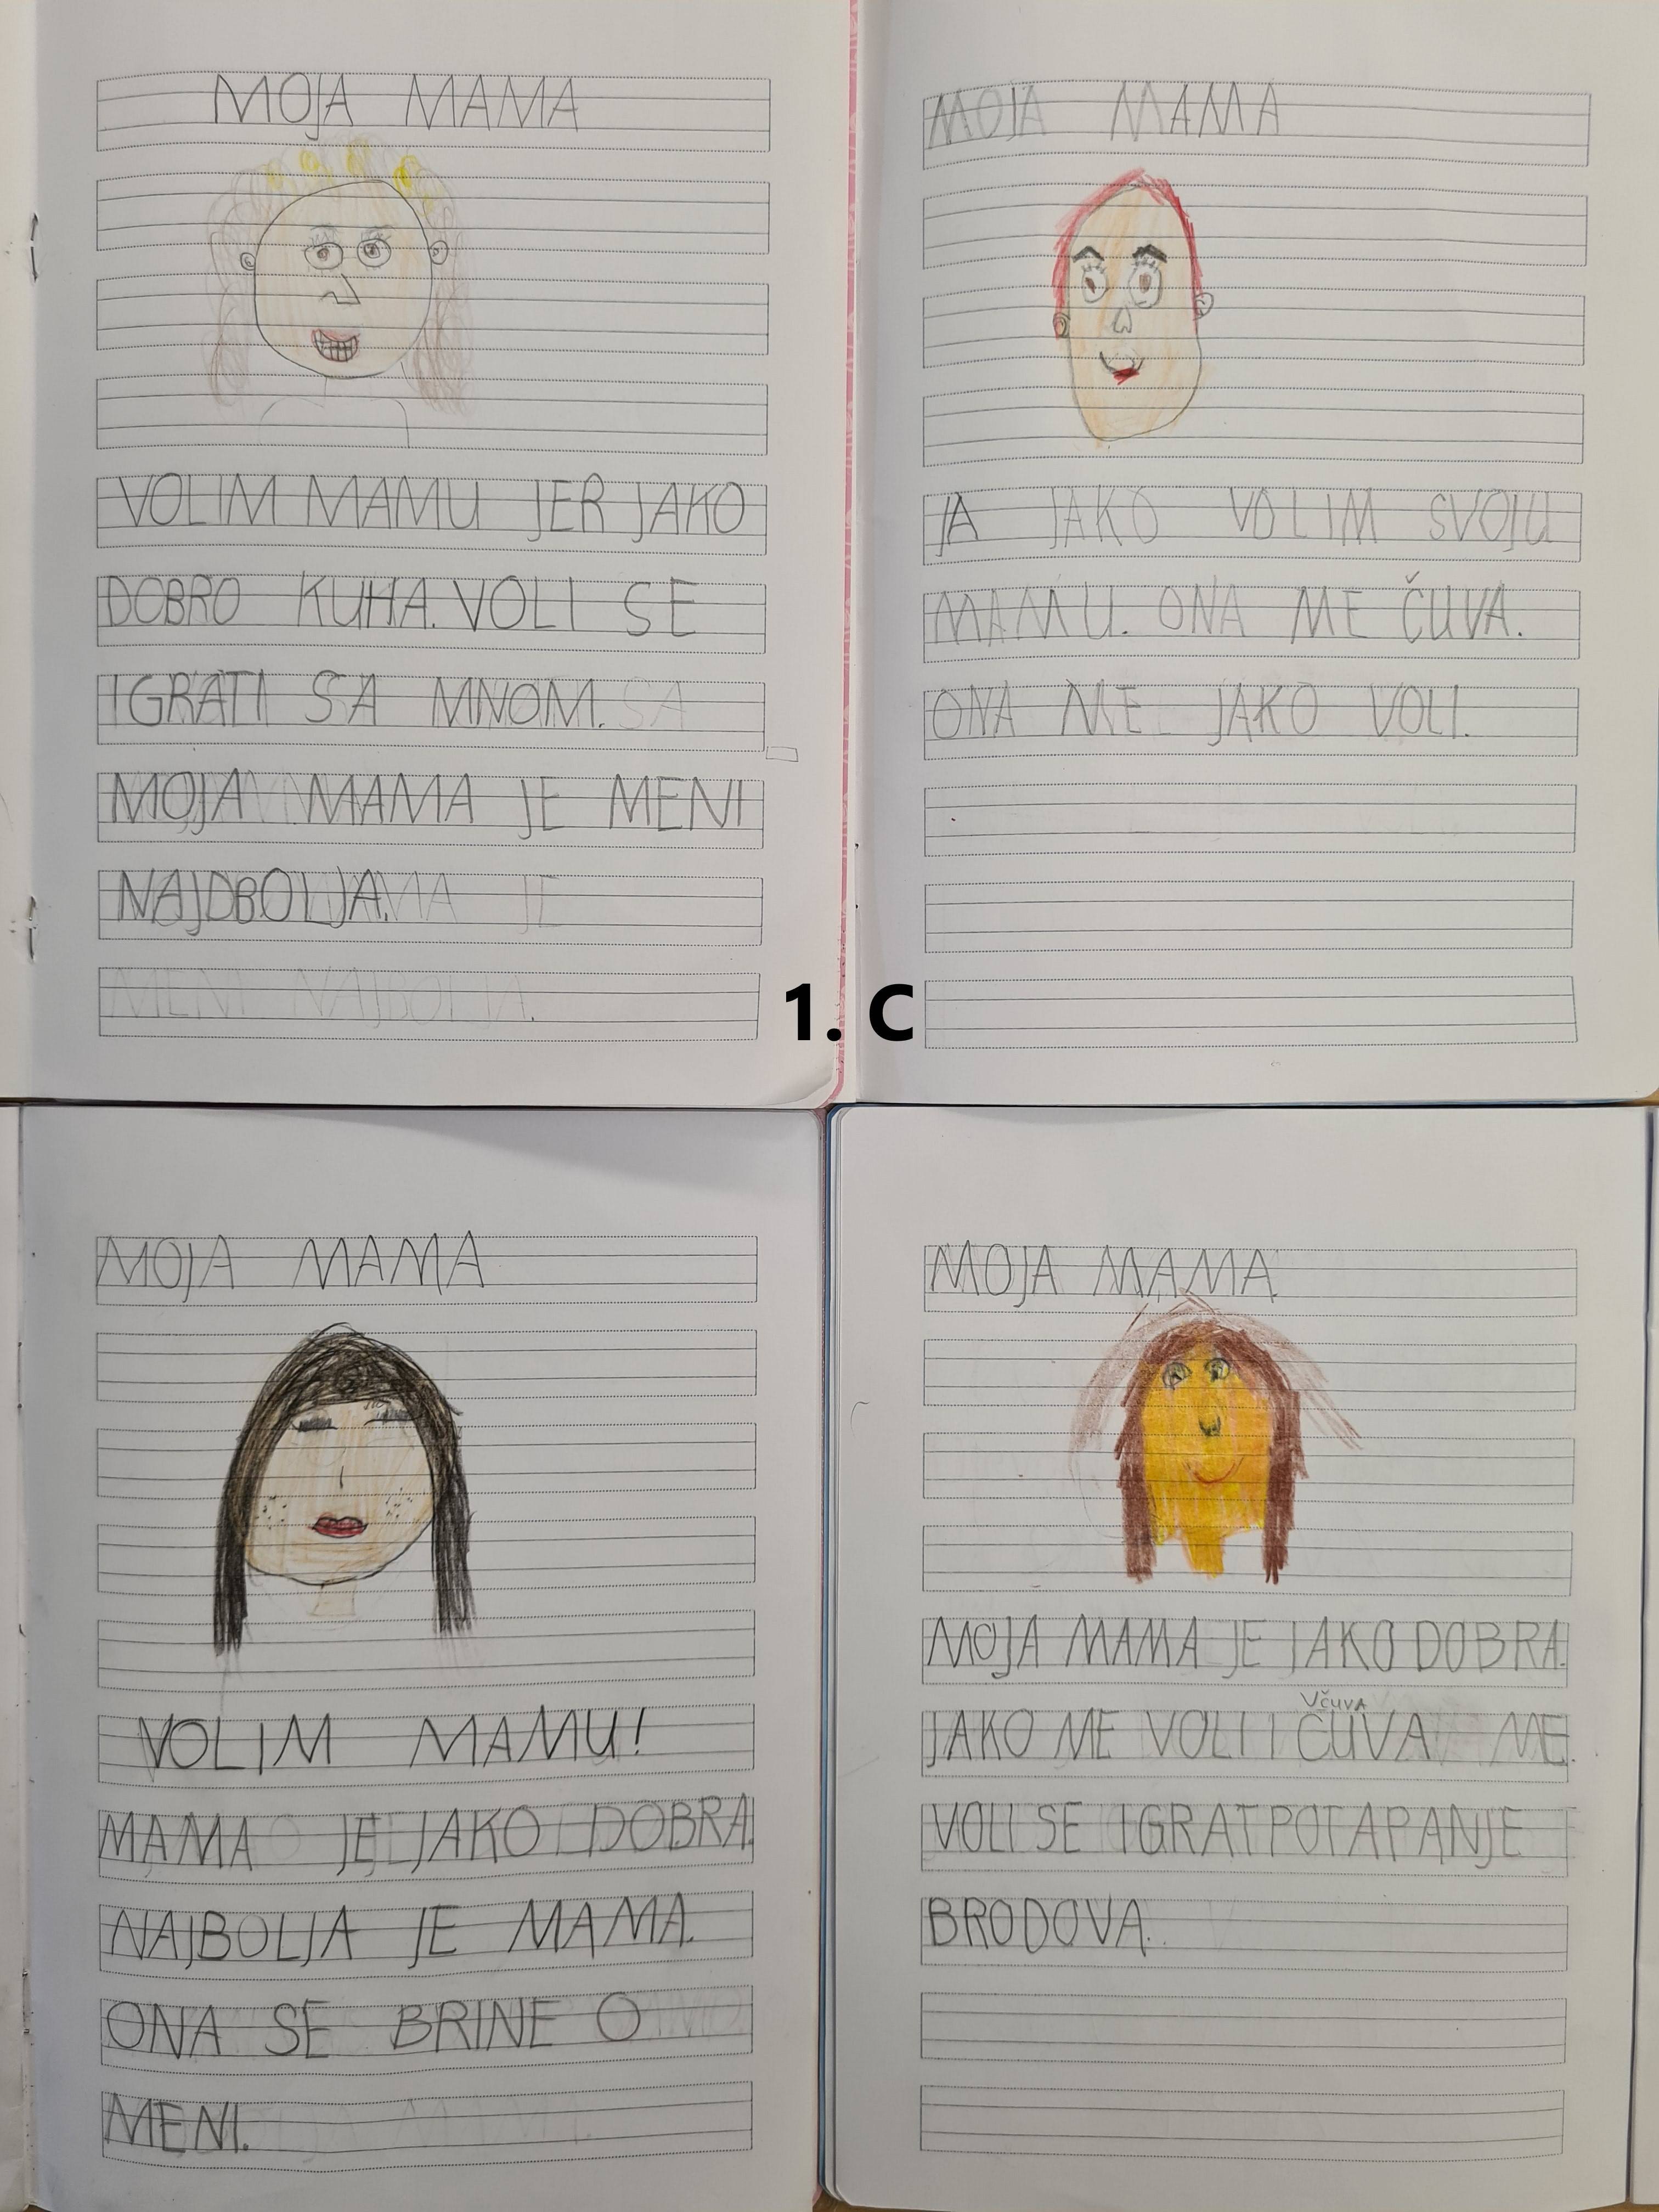 MOJA MAMA
VOLIM MAMU JER JAKO
DOBRO KUHA. VOLI SE
IGRATI SA MNOM. SA
MOJA MAMA JE MENI
NAJDBOLJA. JE
MENI NAJBOLJA.
MOJA MAMA
JA JAKO VOLIM SVOJU
MAMU. ONA ME ČUVA.
ONA ME JAKO VOLI.
1. C
MOJA MAMA
VOLIM MAMU!
MAMA JE JAKO DOBRA.
NAJBOLJA JE MAMA.
ONA SE BRINE O
MENI.
MOJA MAMA
MOJA MAMA JE JAKO DOBRA.
JAKO ME VOLI I ČUVA ME.
VOLI SE IGRAT POTAPANJE
BRODOVA.